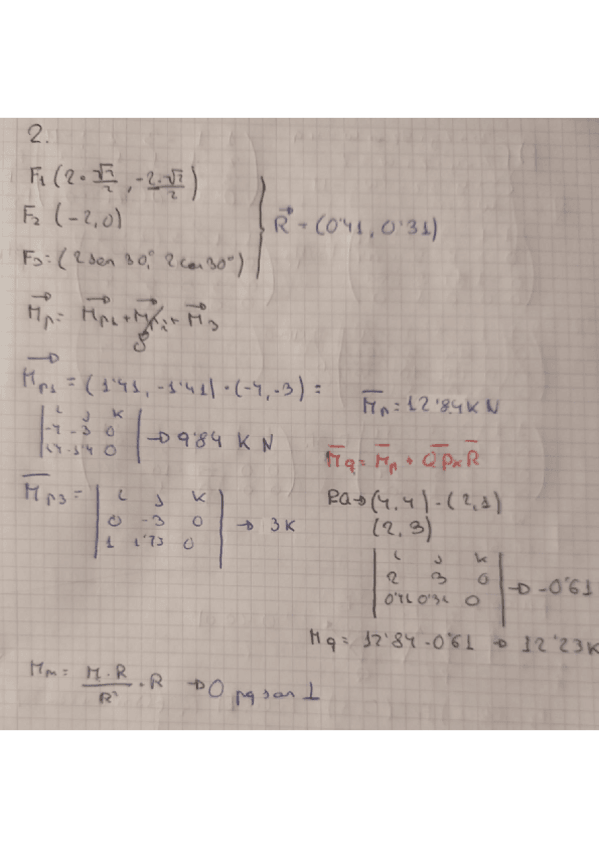 2.
F1 (2·√2/2, -2·√2/2)
F2 (-2,0)
F3: (2 sen 30°, 2 cos 30°)
R = (0'41, 0'31)
Mp = Mp1 + Mp2 + M3
Mp1 = (1'41, -1'41) · (-4,-3) =
| i j k
-4 -3 0
1'4 -1'4 0 | → 9'84 K N
Mp3 = | i j k
0 -3 0
1 1'73 0 | → 3K
Mp = 12'84 K N
Mq = Mp + QP x R
PQ → (4,4) - (2,1)
(2,3)
| i j k
2 3 0
0'41 0'31 0 | → -0'61
Mq = 12'84 - 0'61 → 12'23K
Mm = M·R / R² · R → 0 pq son ⊥